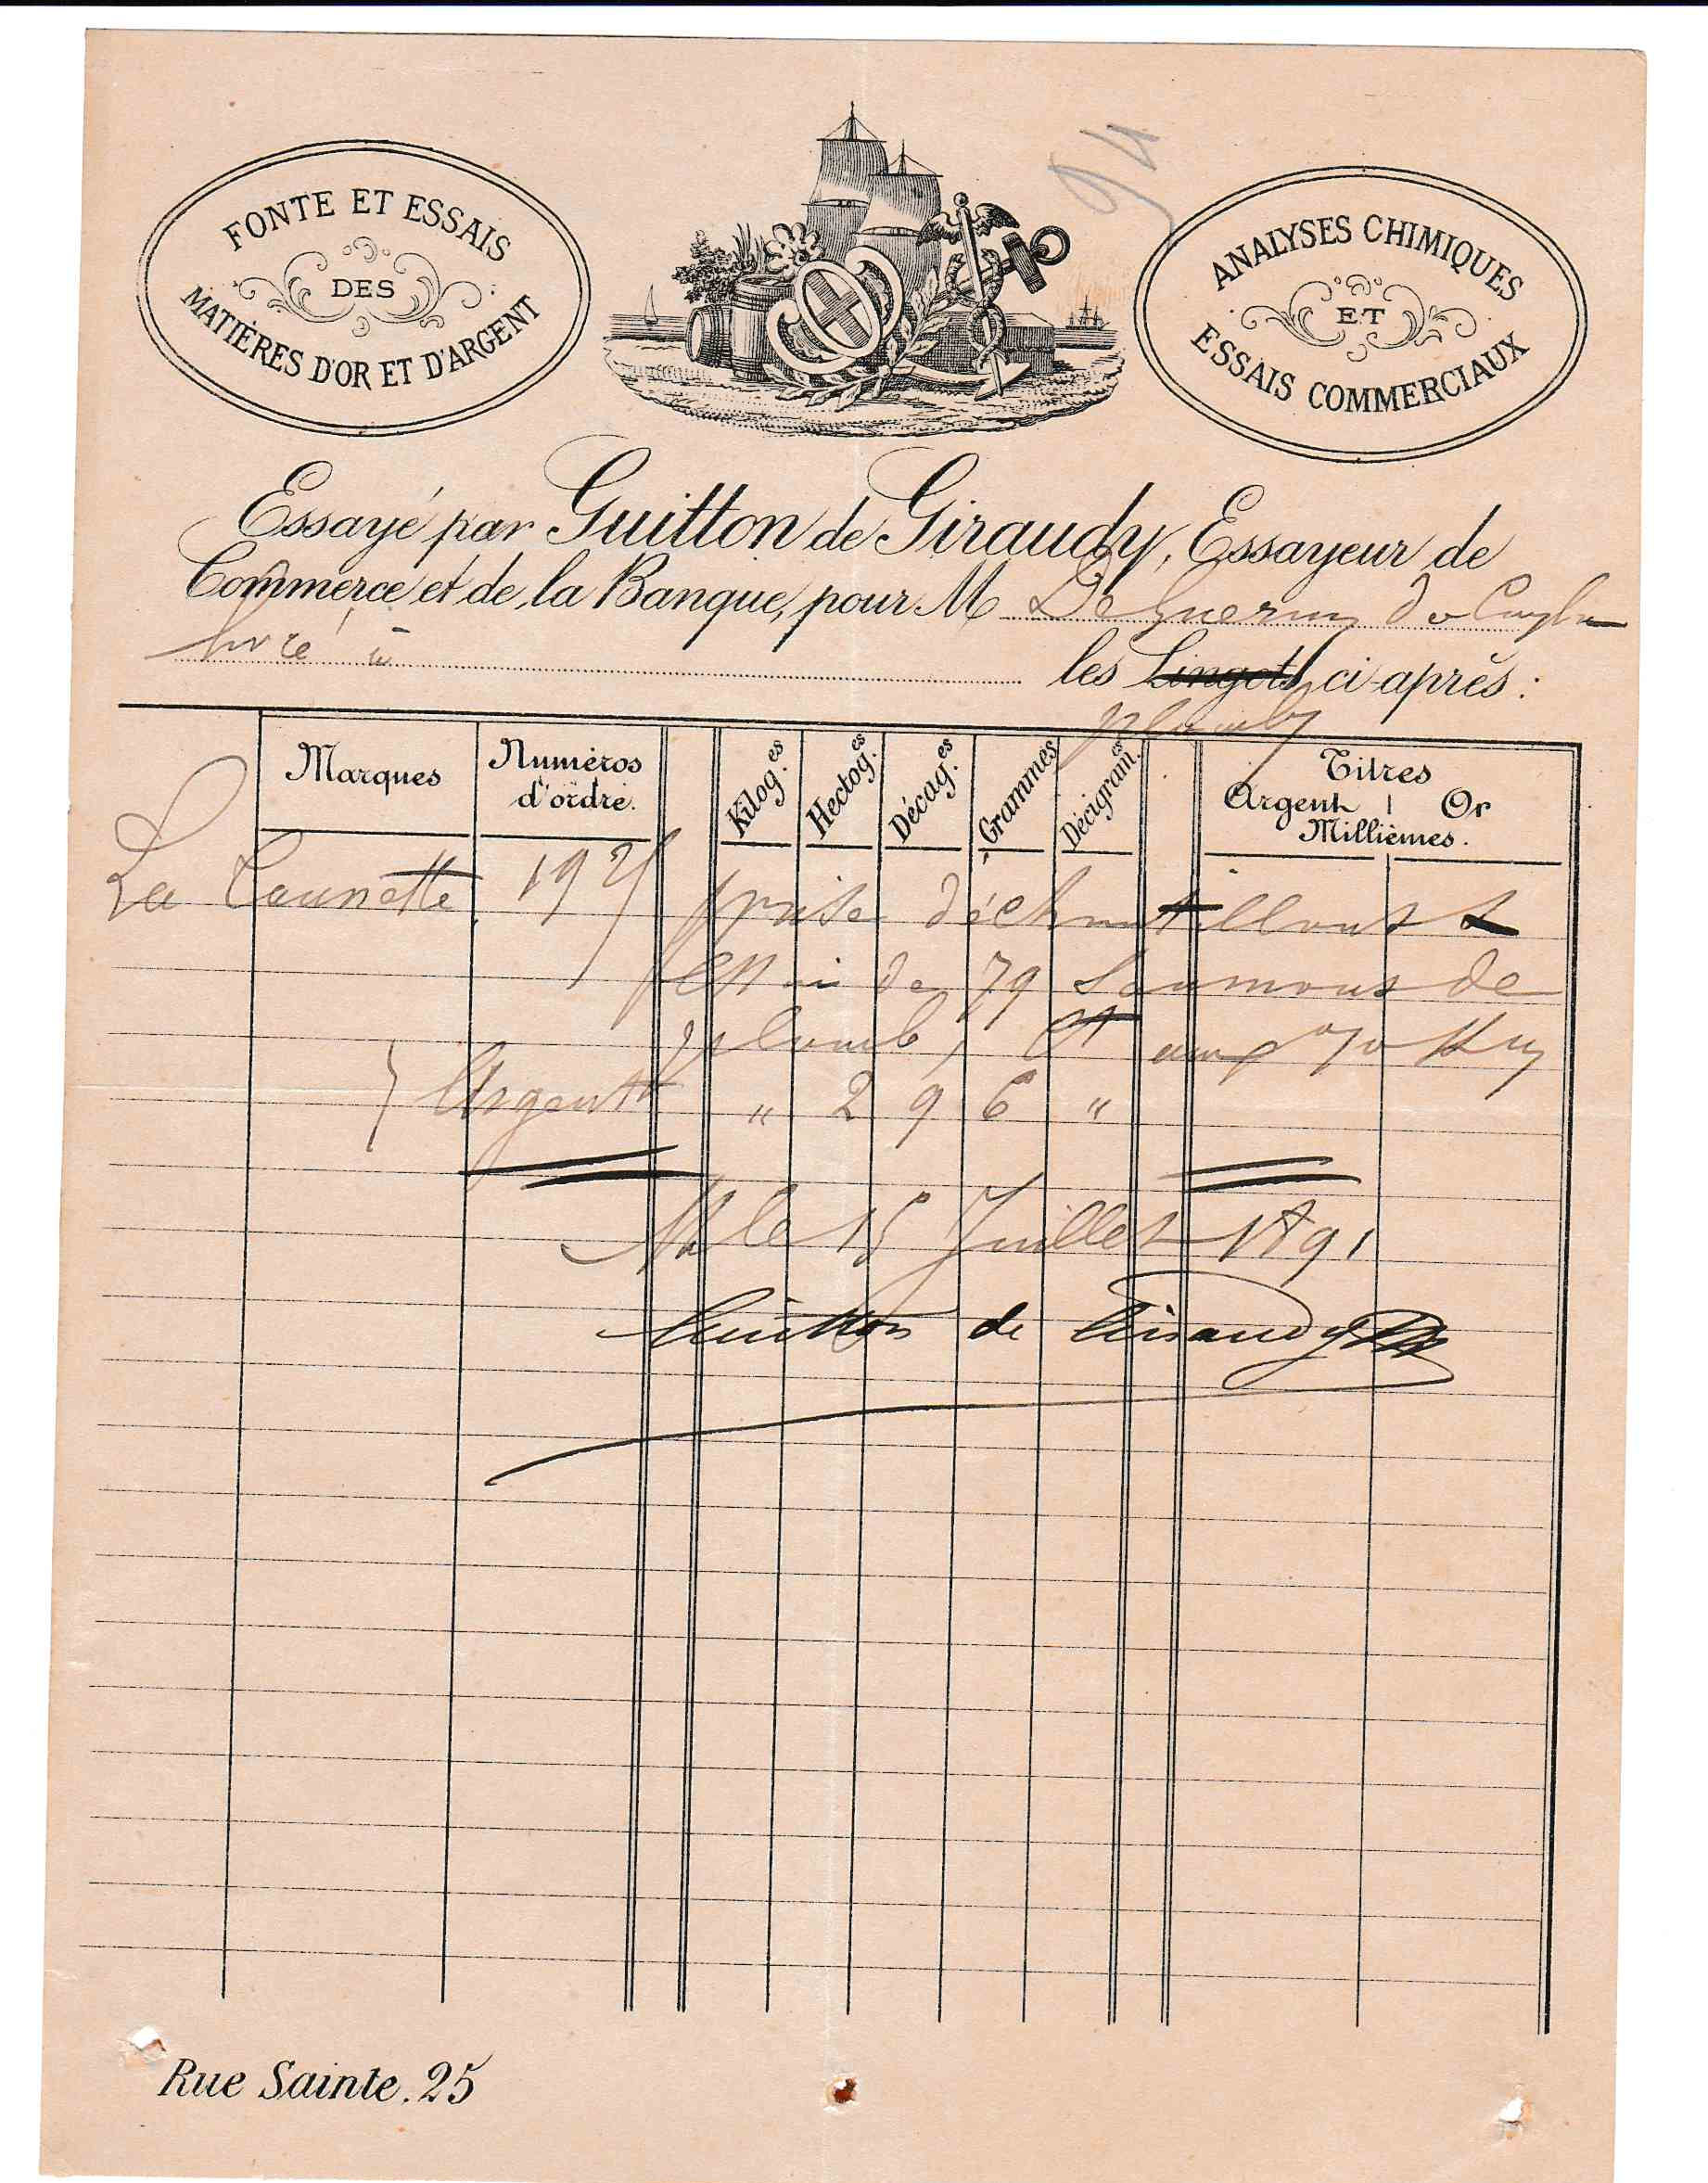 94
FONTE ET ESSAIS
DES
MATIÈRES D'OR ET D'ARGENT
ANALYSES CHIMIQUES
ET
ESSAIS COMMERCIAUX
Essayé par Guitton de Giraudy, Essayeur de
Commerce et de la Banque, pour M De Guerin
livré à les Lingots ci-après :
plomb
Marques
Numéros d'ordre.
Kilog.es
Hectog.es
Décag.es
Grammes
Décigram.es
Titres
Argent | Or
Millièmes.
La Caunette 192 prise d'échantillons &
essai de 79 Saumons de
plomb, et aux %o Kil
Argent " 2 9 6 "
Mle 15 Juillet 1891
Guitton de Giraudy
Rue Sainte. 25